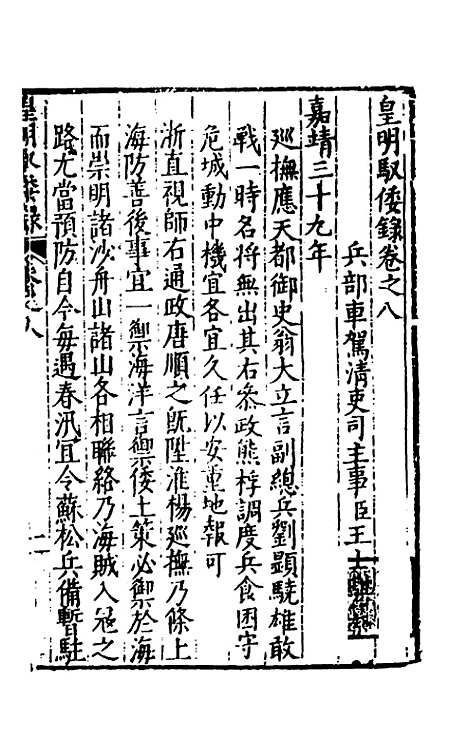 皇明馭倭錄卷之八
兵部車駕清吏司主事臣王士騏
嘉靖三十九年
巡撫應天都御史翁大立言副總兵劉顯驍雄敢
戰一時名將無出其右叅政熊桴調度兵食困守
危城動中機宜各宜久任以安重地報可
浙直視師右通政唐順之旣陞淮楊巡撫乃條上
海防善後事宜一禦海洋言禦倭上策必禦於海
而崇明諸沙舟山諸山各相聯絡乃海賊入寇之
路尤當預防自今每遇春汛宜令蘇松兵備暫駐
皇明馭倭錄 卷之八 一